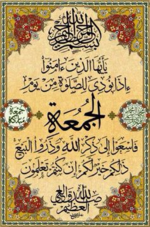 بسم الله الرحمن الرحيم
يا أيها الذين ءامنوا
إذا نودي للصلوة من يوم
الجمعة
فاسعوا إلى ذكر الله وذروا البيع
ذلكم خير لكم إن كنتم تعلمون
صدق الله العلي
العظيم